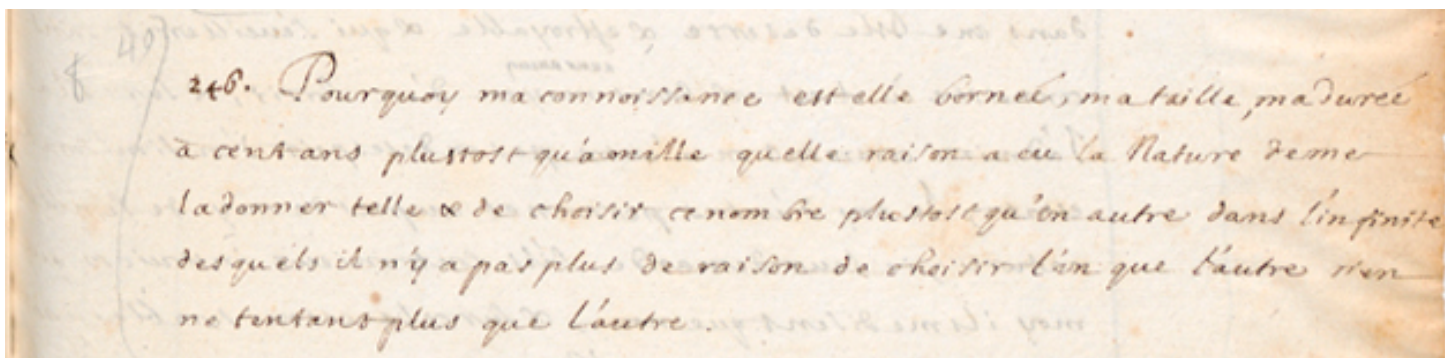 246. Pourquoy ma connoissance est elle borneé, ma taille, ma dureé
a cent ans plustost qu'a mille quelle raison a eu la Nature de me
la donner telle & de choisir ce nombre plustost qu'un autre dans l'infinite
des quels il n'y a pas plus de raison de choisir l'un que l'autre rien
ne tentant plus que l'autre.